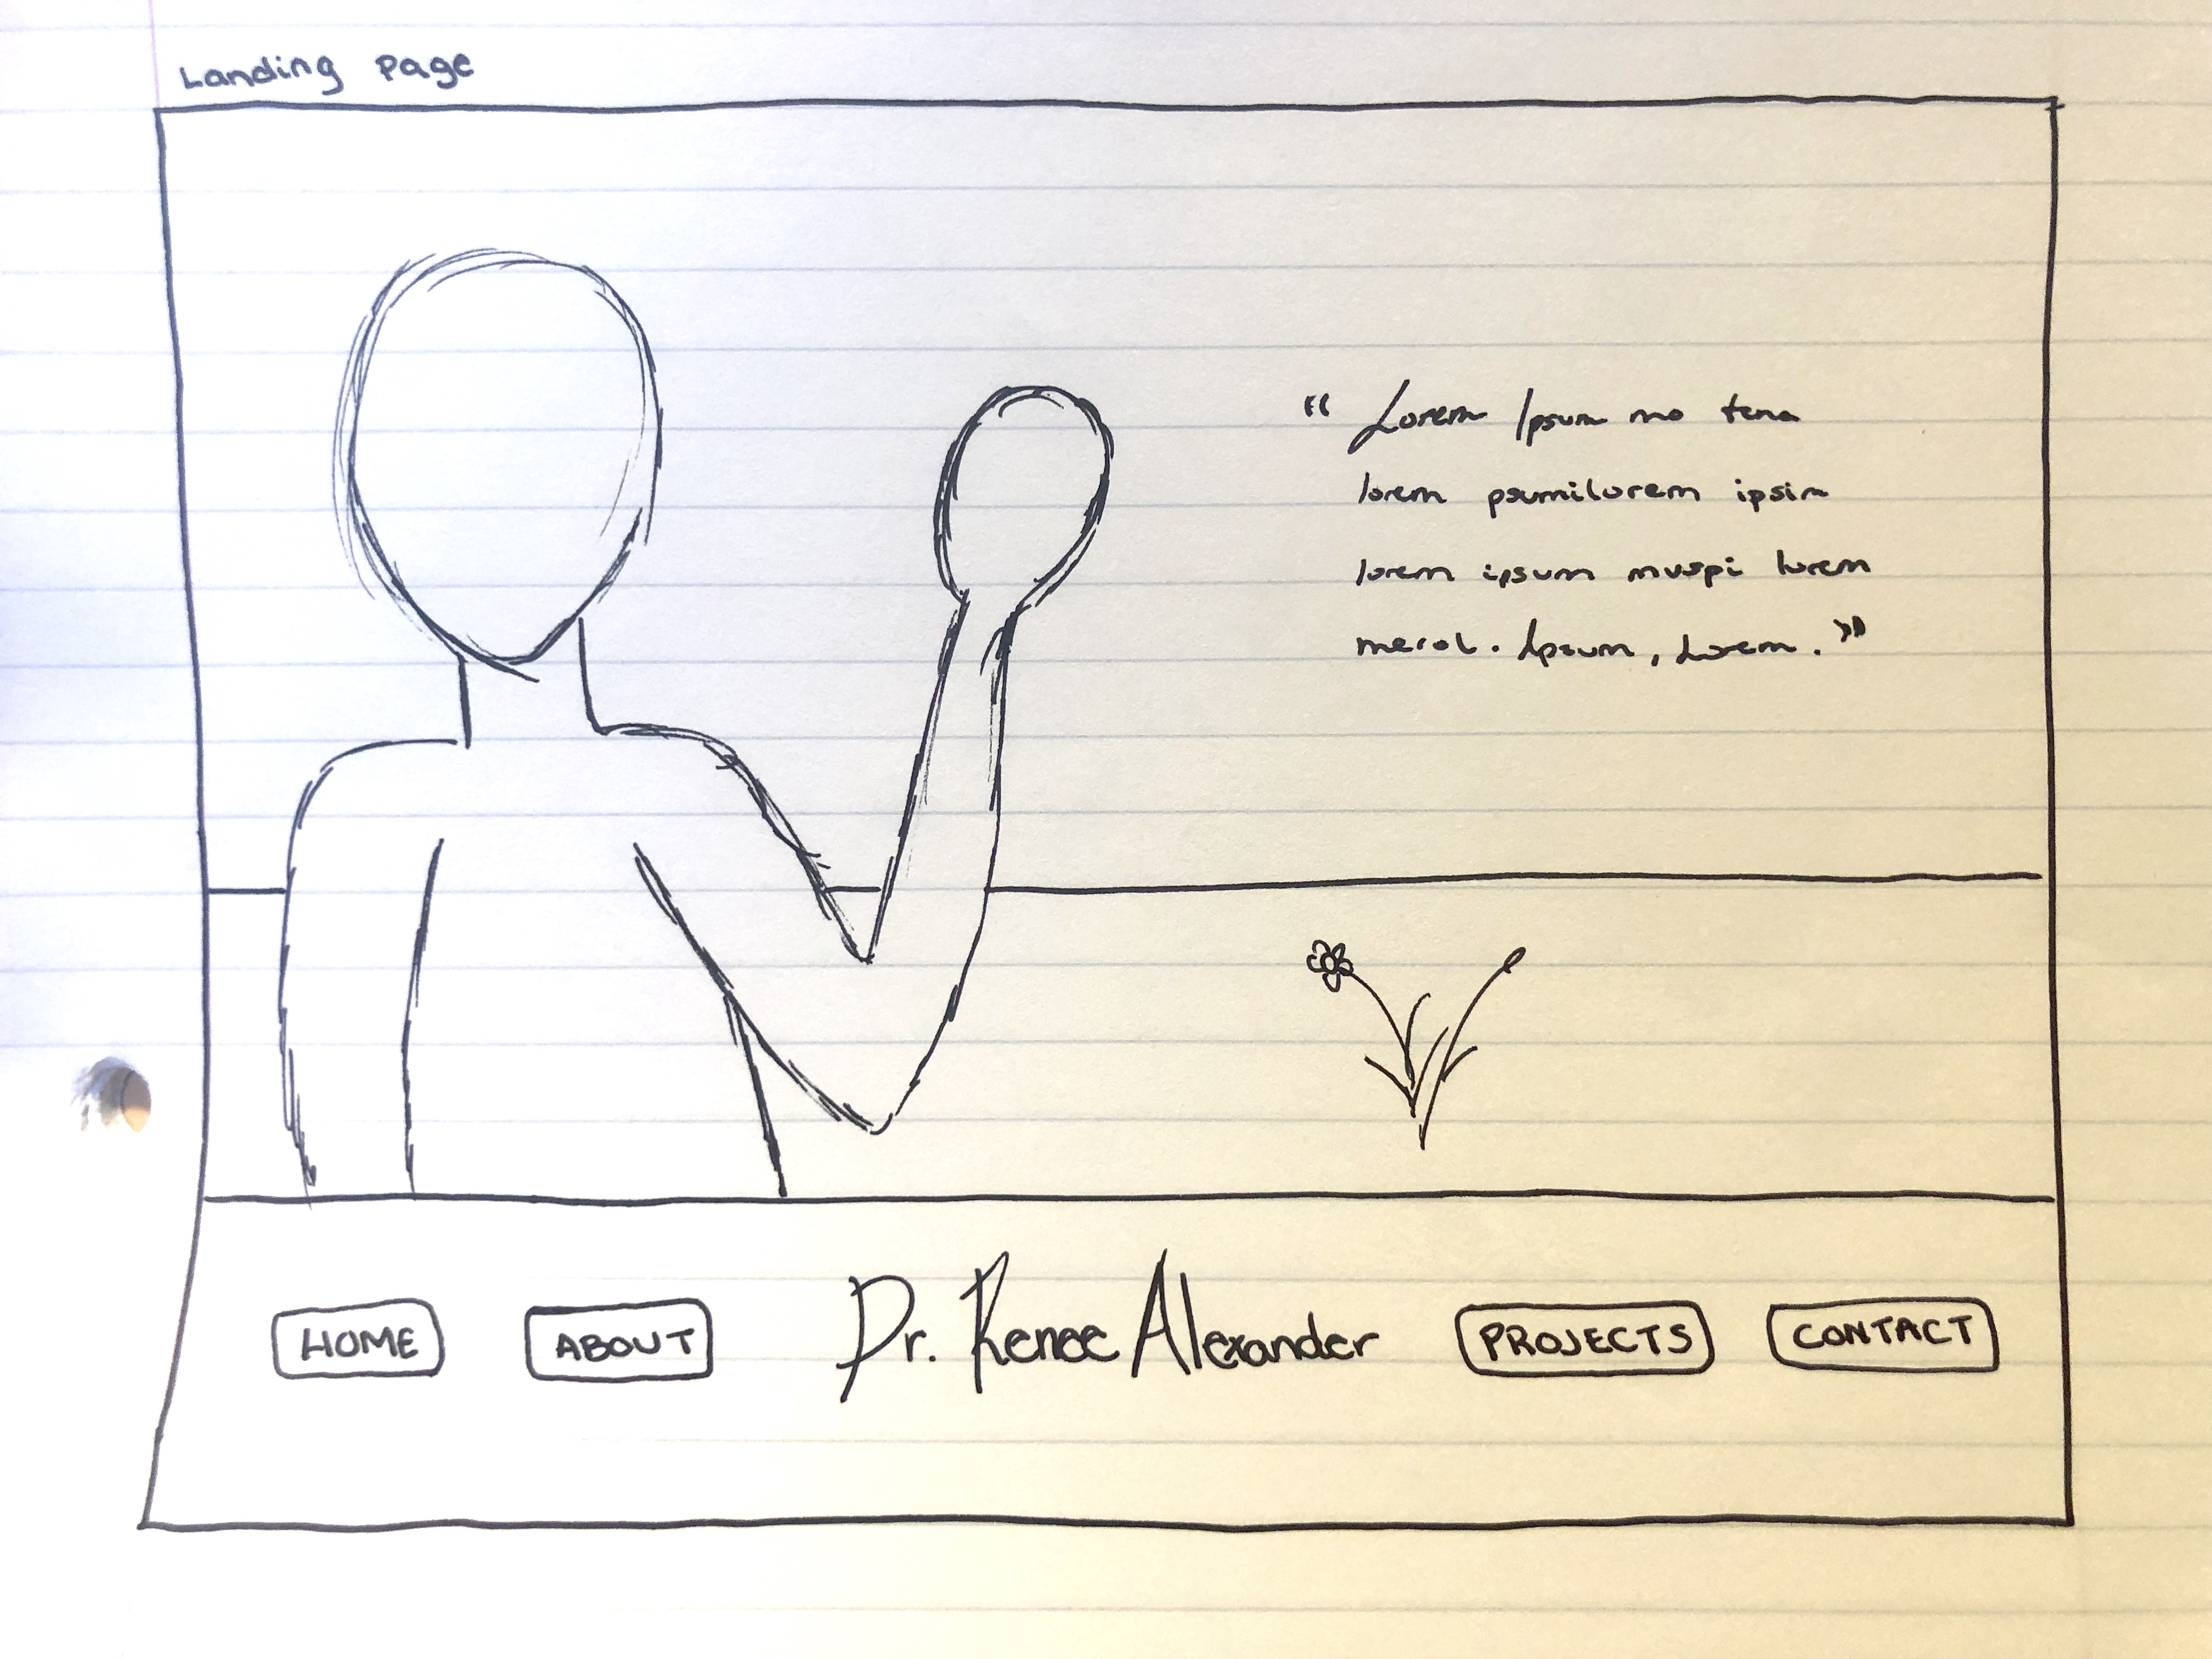 Landing Page
“ Lorem Ipsum mo tena
lorem psumilorem ipsim
lorem ipsum muspi lorem
merol. Ipsum, Lorem.”
HOME ABOUT Dr. Renee Alexander PROJECTS CONTACT